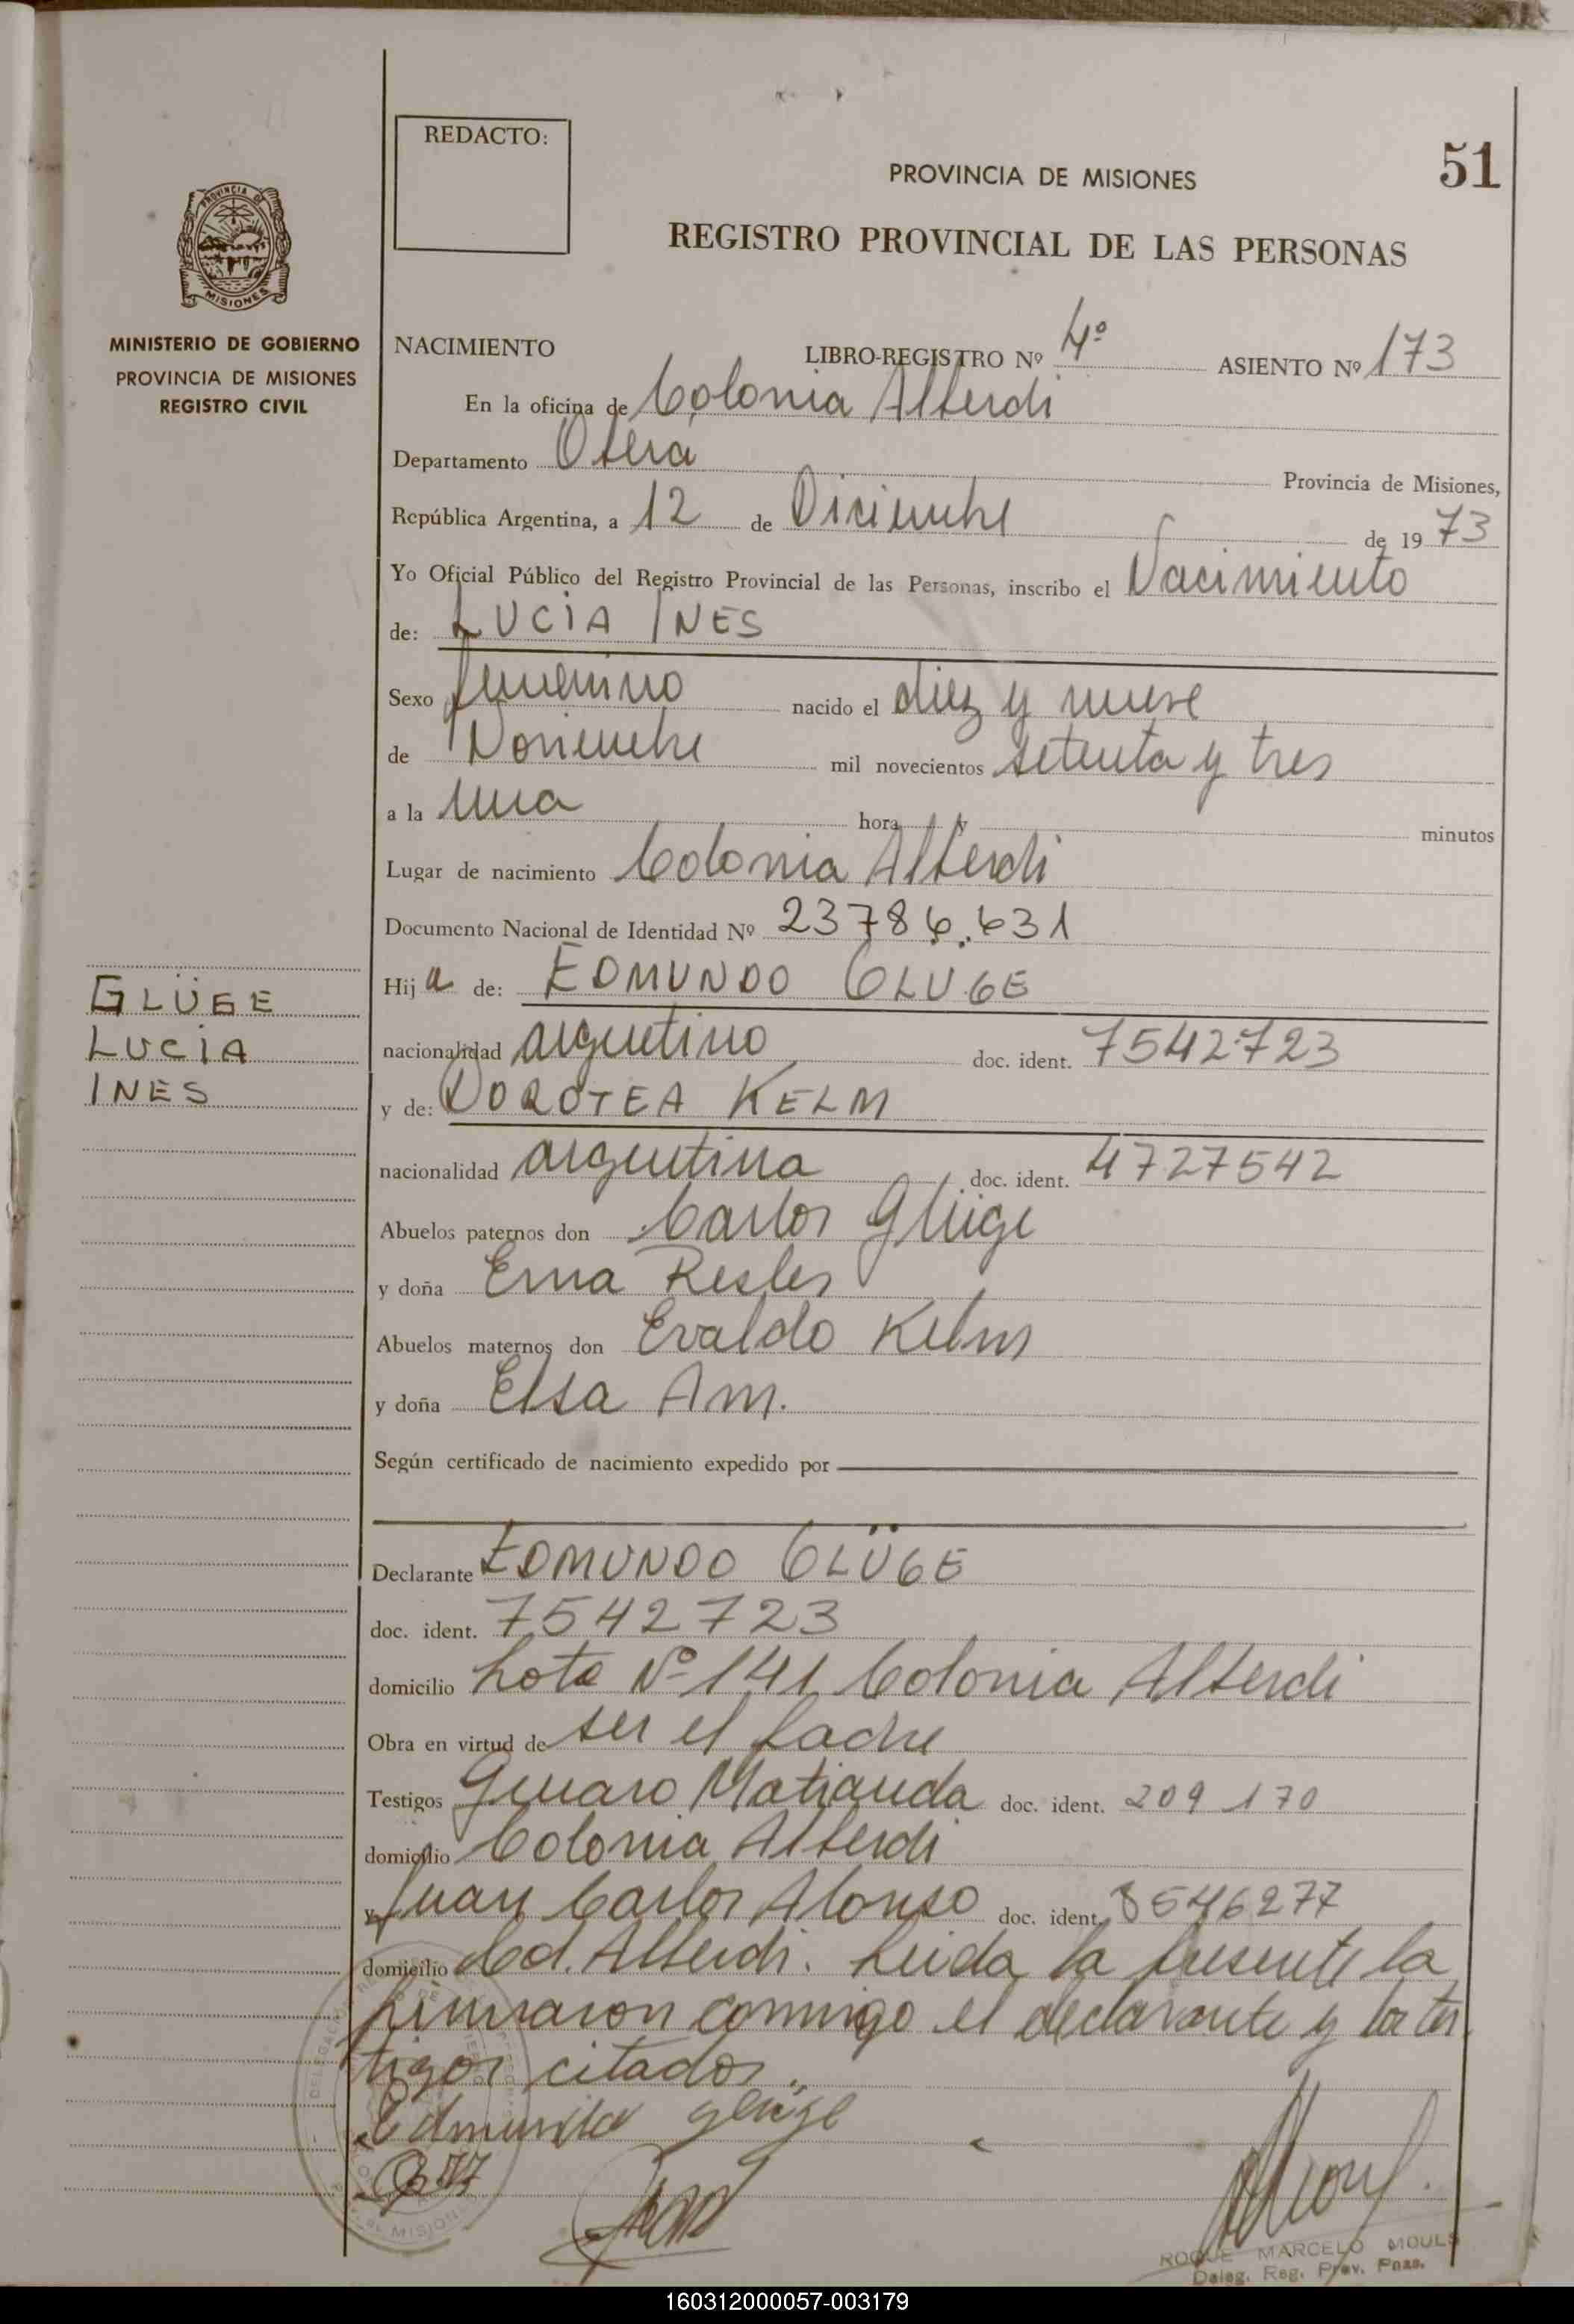 REDACTO:
51
PROVINCIA DE MISIONES
REGISTRO PROVINCIAL DE LAS PERSONAS
PROVINCIA DE
MISIONES
MINISTERIO DE GOBIERNO
PROVINCIA DE MISIONES
REGISTRO CIVIL
NACIMIENTO LIBRO-REGISTRO Nº 4º ASIENTO Nº 173
En la oficina de Colonia Alberdi
Departamento Oberá Provincia de Misiones,
República Argentina, a 12 de Diciembre de 1973
Yo Oficial Público del Registro Provincial de las Personas, inscribo el Nacimiento
de: LUCÍA INES
Sexo femenino nacido el diez y nueve
de Noviembre mil novecientos setenta y tres
a la una hora y minutos
Lugar de nacimiento Colonia Alberdi
Documento Nacional de Identidad Nº 23786.631
Hija de: EDMUNDO GLUGE
GLÜGE
LUCÍA
INES
nacionalidad argentino doc. ident. 7542723
y de: DOROTEA KELM
nacionalidad argentina doc. ident. 4727542
Abuelos paternos don Carlos Glüge
y doña Erna Resler
Abuelos maternos don Evaldo Kelm
y doña Elsa Am.
Según certificado de nacimiento expedido por
Declarante EDMUNDO GLÜGE
doc. ident. 7542723
domicilio Lote Nº 141 Colonia Alberdi
Obra en virtud de ser el padre
Testigos Genaro Matianda doc. ident. 209170
domicilio Colonia Alberdi
y Juan Carlos Alonso doc. ident. 8546277
domicilio Col. Alberdi. Leida la presente la
firmaron conmigo el declarante y los tes
tigos citados.
Edmundo glüge
ROQUE MARCELO MOULS
Deleg. Reg. Prov. Pnas.
160312000057-003179